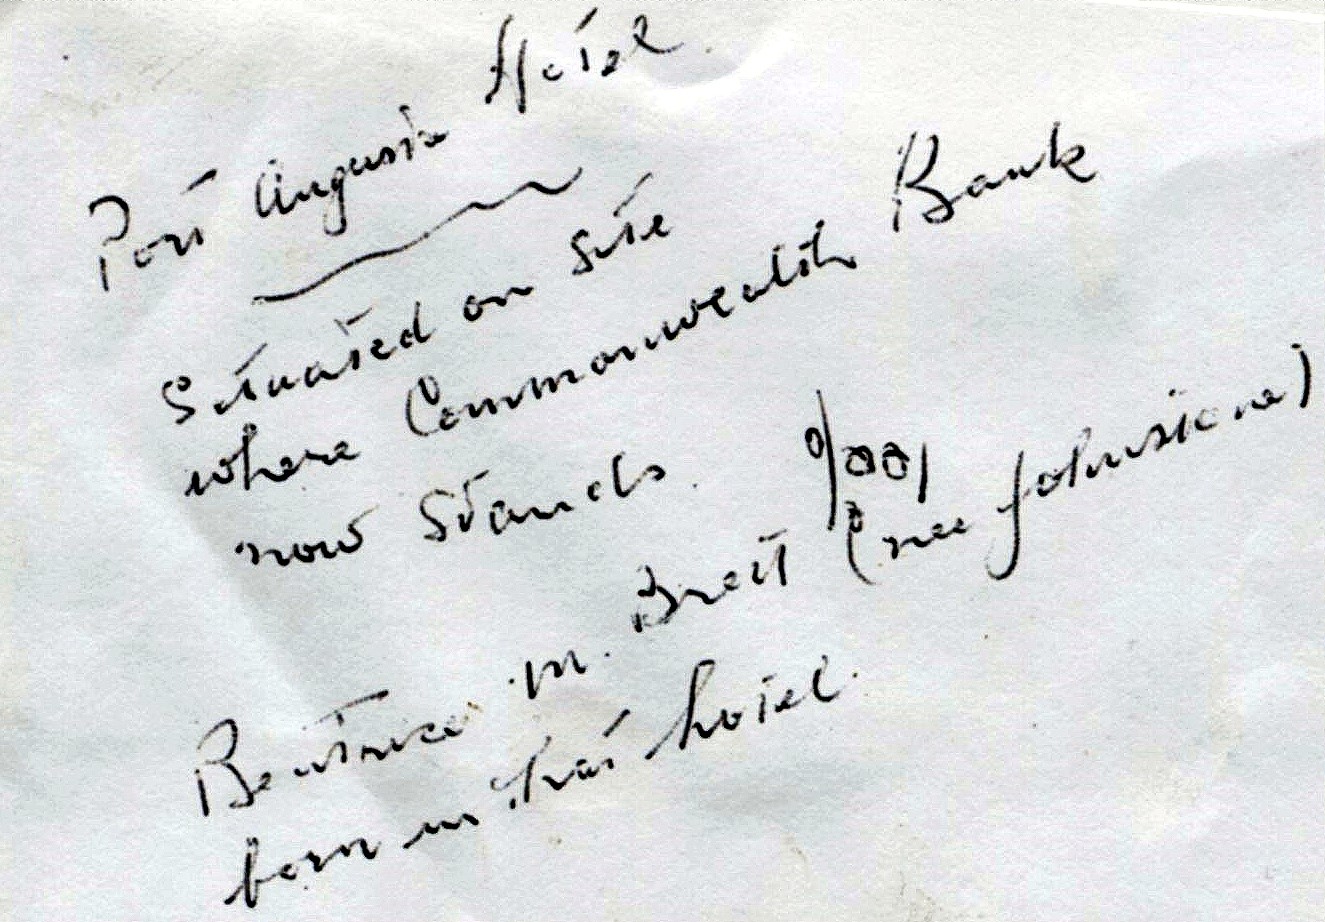 Port Augusta Hotel
Situated on site
where Commonwealth Bank
now stands.
Beatrice M. Brett (nee Johnstone)
born in that hotel.